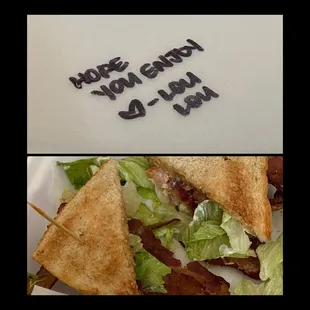 HOPE
YOU ENJOY
♡ - LOU
LOU